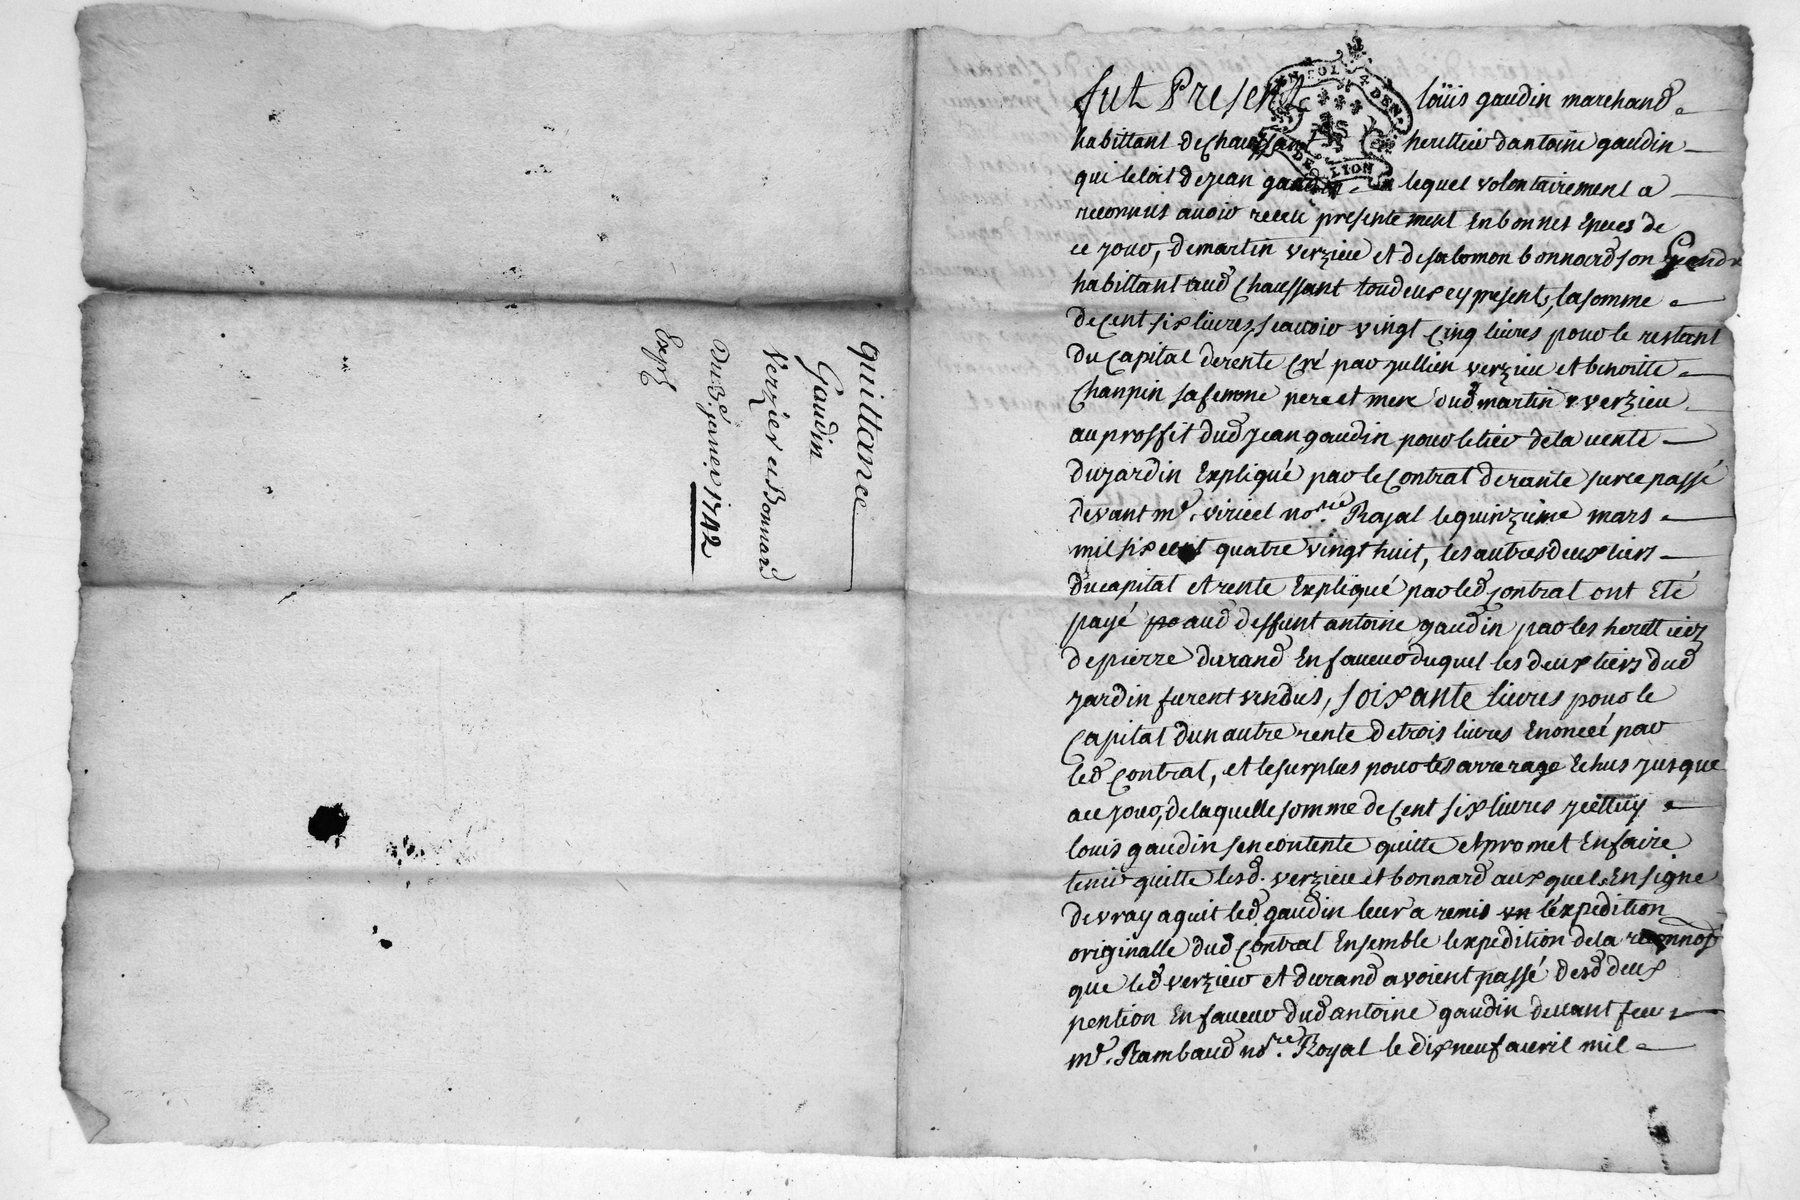 quittance
Gaudin
Verzier et Bonnard
Du 3.e janvier 1742
Exp
UN SOL 4 DEN.
DE LION
fut Present Loüis gaudin marchand
habittant de chaussant herittier dantoine gaudin
qui letoit de jean gaudin lequel volontairement a
reconnus avoir receu presentement En bonnes Epeces de
ce jour, de martin verzieu et de salomon bonnard son Gendre
habittant aud Chaussant toudeux cy present, la somme
de Cent six livres, scavoir vingt Cinq livres pour le restant
du Capital de rente Cré par jullien verzieu et benoitte
Chanpin sa femme pere et mere dud martin verzieu
au proffit dud jean gaudin pour le tier de la vente
du jardin Expliqué par le Contrat de rante sur ce passé
devant me. viricel nore Royal le quinzieme mars
mil six cent quatre vingt huit, les autres deux tiers
du capital et rente Expliqué par led Contrat ont Eté
payé aud deffunt antoine gaudin par les herittiez
de pierre durand En faveur duquel les deux tiers dud
jardin furent vendus, soixante livres pour le
Capital dun autre rente de trois livres Enoncéé par
led Contrat, et le surplus pour les arrerage Echus jusque
a ce jour, de laquelle somme de Cent six livres jcelluy
louis gaudin sen contente quitte et promet En faire
tenir quitte lesd. verzieu et bonnard auxquels En signe
de vray aquit led gaudin leur a remis lexpedition
originalle dud Contrat Ensemble lexpedition de la
que led verzieu et durand avoient passé desd deux
pention En faveur dud antoine gaudin devant feu
me. Rambaud nore. Royal le dix neuf avril mil